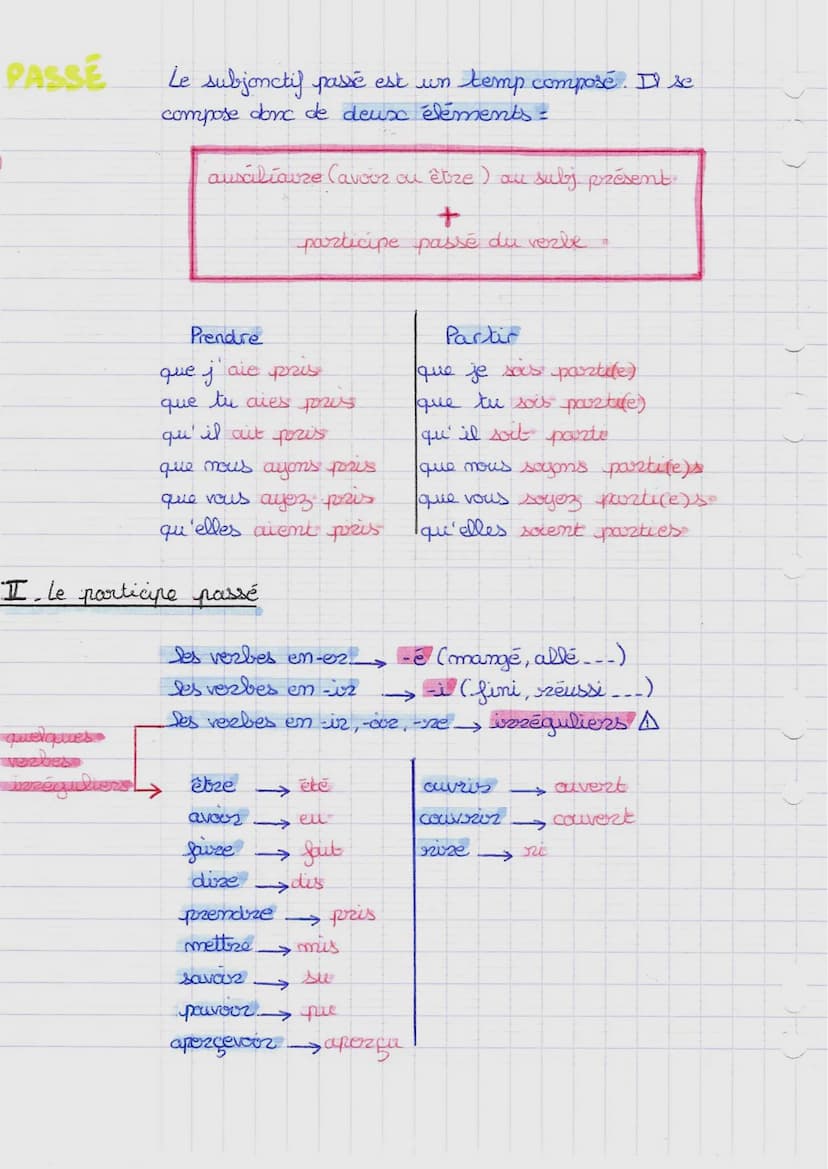 PASSÉ
Le subjonctif passé est un temp composé. Il se
compose donc de deux éléments :
auxiliaire (avoir ou être) au subj. présent
+
participe passé du verbe.
Prendre
que j'aie pris
que tu aies pris
qu'il ait pris
que nous ayons pris
que vous ayez pris
qu'elles aient pris
Partir
que je sois parti(e)
que tu sois parti(e)
qu'il soit partie
que nous soyons parti(e)s
que vous soyez parti(e)s
qu'elles soient parties
II. Le participe passé
les verbes en -er → -é (mangé, allé...)
les verbes en -ir → -i (fini, réussi...)
les verbes en -ir, -oir, -re → irréguliers ⚠
quelques
verbes
irréguliers
être → été
avoir → eu
faire → fait
dire → dis
prendre → pris
mettre → mis
savoir → su
pouvoir → pu
aperçevoir → aperçu
ouvrir → ouvert
couvrir → couvert
rire → ri